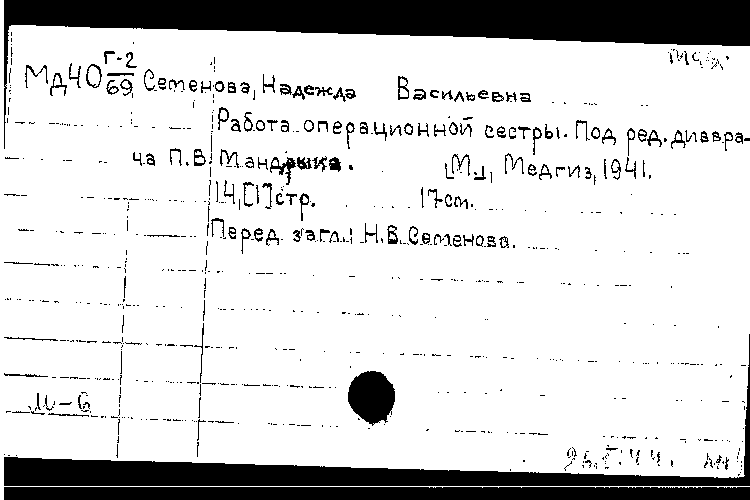 Мд40 Г-2/69 Семенова, Надежда Васильевна
Работа операционной сестры. Под ред. диввра-
ча П.В. Мандрыка. [М.], Медгиз, 1941.
14,[1] стр. 17 см.
Перед загл.: Н.В. Семенова.
М-6